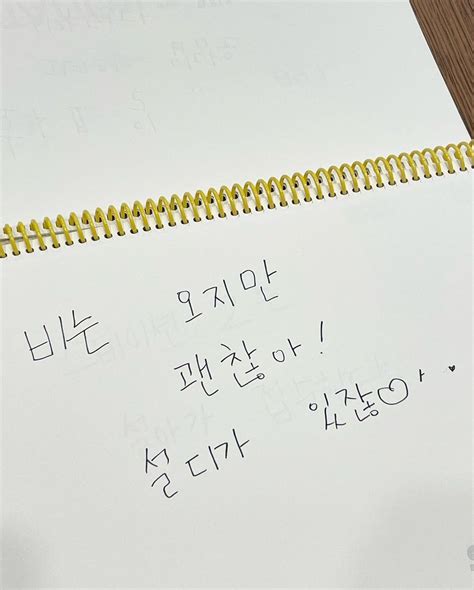 비는 오지만
괜찮아!
설디가 있잖아